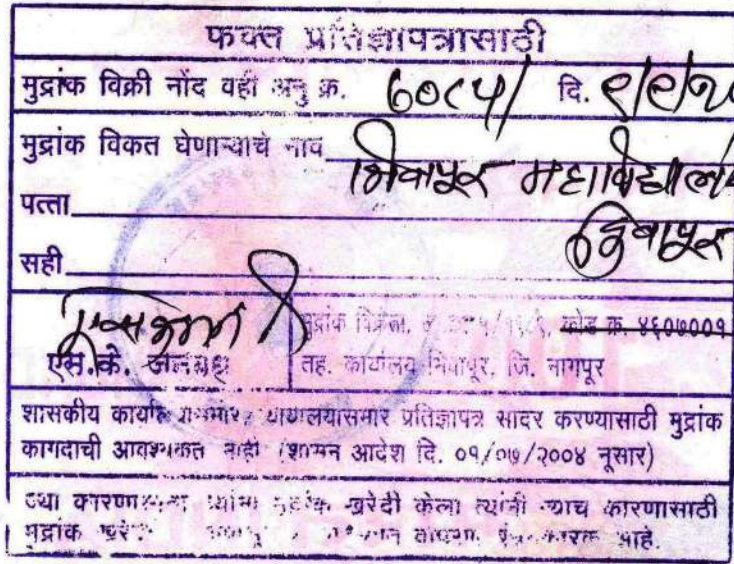 फक्त प्रतिज्ञापत्रासाठी
मुद्रांक विक्री नोंद वही अनु क्र. ७०८५/ दि. ९/९/२०
मुद्रांक विकत घेणाऱ्याचे नाव भिवापूर महाविद्यालय
पत्ता भिवापूर
सही
एस.के. मुद्रांक विक्रेता, कोड क्र. ४६०७००१
तह. कार्यालय भिवापूर, जि. नागपूर
शासकीय प्रतिज्ञापत्र सादर करण्यासाठी मुद्रांक
कागदाची आवश्यकता नाही (शासन आदेश दि. ०१/०७/२००४ नूसार)
ज्या खरेदी केला त्यांनी त्याच कारणासाठी
मुद्रांक आहे.